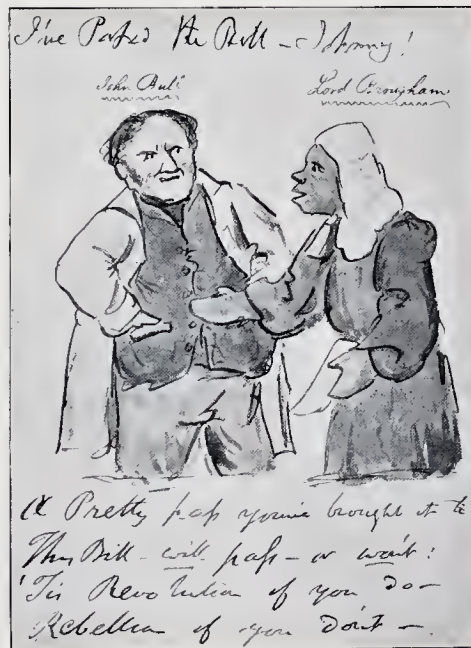 I've Paſsed the Bill – Johnny!
John Bull
Lord Brougham
A Pretty paſs you've brought it to
This Bill – will paſs – or won't:
'Tis Revolution if you do –
Rebellion if you don't –.